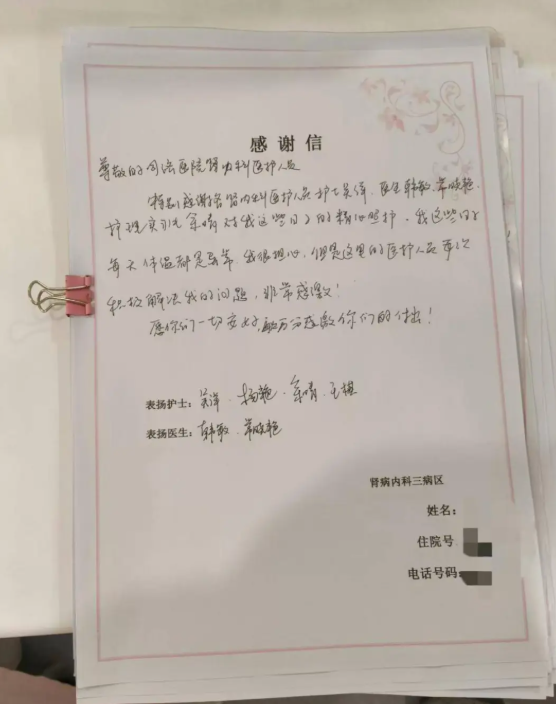 感谢信
尊敬的 医院肾内科医护人员
特别感谢 肾内科医护人员护士 医生韩敏、
护理实习 余晴对我这些日子的精心照护,我这些日子
每天体温都是异常 我很担心,但是这里的医护人员
积极解决我的问题,非常感激!
愿你们一切安好, 感激你们的付出!
表扬护士: 杨艳、余晴、
表扬医生:韩敏、
肾病内科三病区
姓名:
住院号
电话号码: